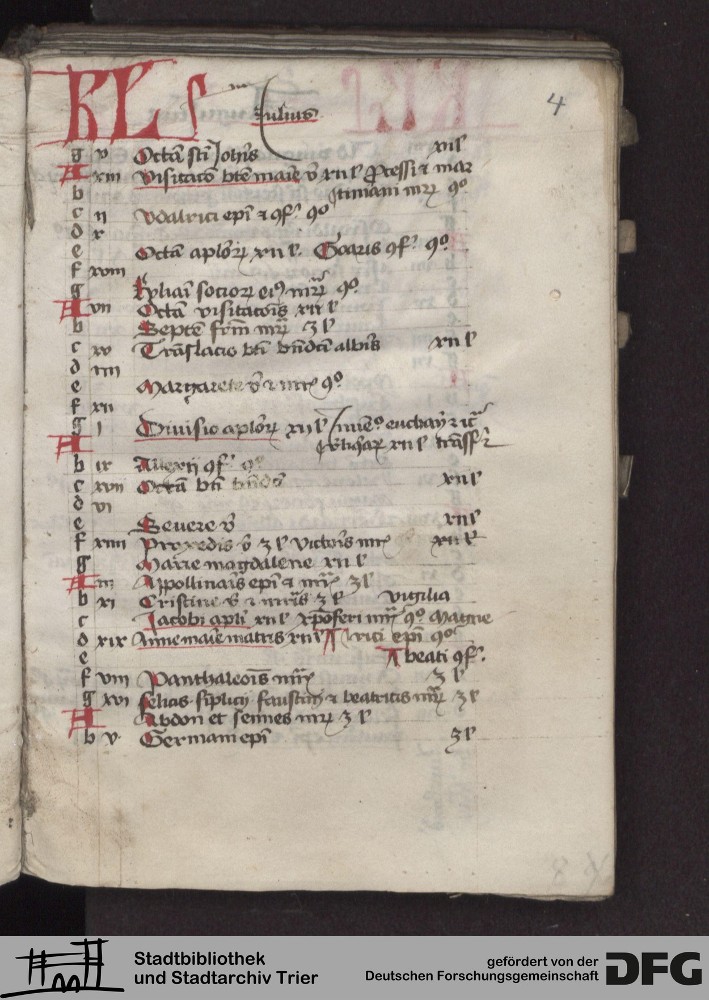 4
KL Julius
g v Octa sci Johis xii l
A xiii Visitatio bte marie v xii l Processi et mar
b tiniani mr 9o
c ii Vdalrici epi et 9f 9o
d x
e Octa aplor xii l. Goaris 9f 9o
f xviii
g Kyliani socior ei9 mr 9o
A vii Octa visitatois xii l
b Septe frm mr 3 l
c xv Translacio bti bndcti abbis xii l
d iiii
e Margarete v et mr 9o
f xii
g i Diuisio aplor xii l
A
b ix Allexii 9f 9o
c xvii Octa bti bndi xii l
d vi
e Seuere v xii l
f xiiii Praxedis v 3 l Victoris mr xii l
g Marie magdalene xii l
A iii Appollinaris epi et mr 3 l
b xi Cristine v et mris 3 l vigilia
c Jacobi apli xii l xpofori mr 9o Magne
d xix Anne marie matris xii l A epi 9o
e A beati 9f.
f viii Panthaleois mr 3 l
g xvi Felicis siplicii faustini et beatricis mr 3 l
A Abdon et sennes mr 3 l
b v Germani epi 3 l
Stadtbibliothek
und Stadtarchiv Trier
gefördert von der
Deutschen Forschungsgemeinschaft
DFG